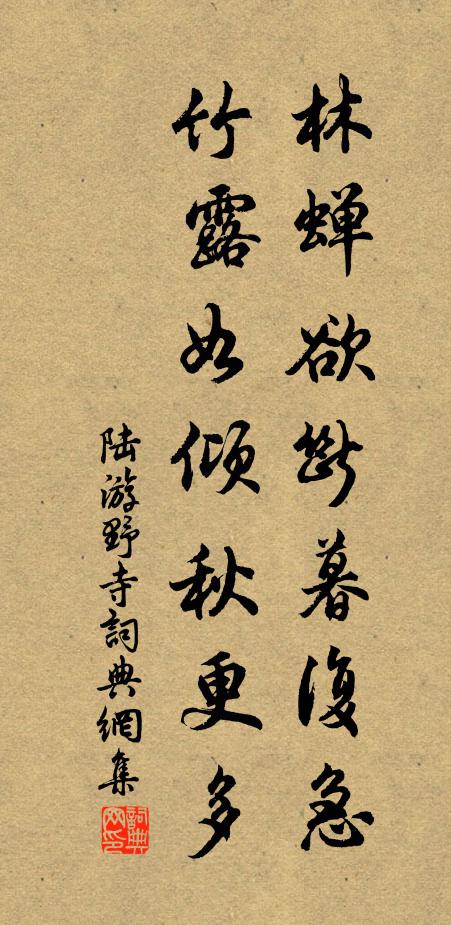 林蝉欲断暮復急
竹露如傾秋更多
陆游野寺詞典網集
詞典网印